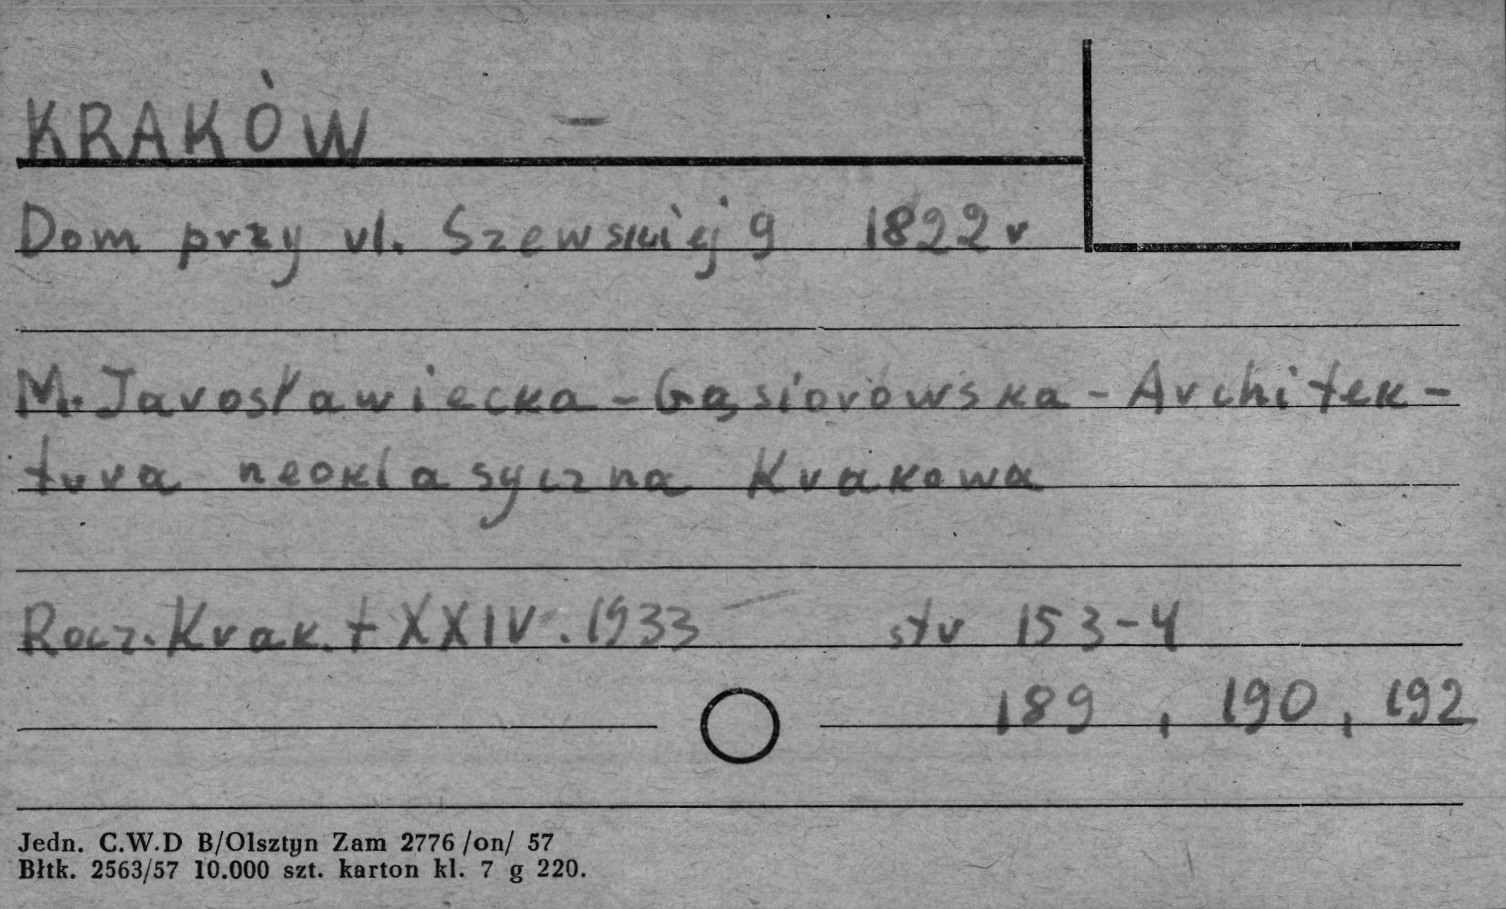 KRAKÓW -
Dom przy ul. Szewskiej 9 1822 r
M. Jarosławiecka - Gąsiorowska - Architek-
tura neoklasyczna Krakowa
Rocz. Krak. t XXIV. 1933 str 153-4
189, 190, 192
Jedn. C.W.D B/Olsztyn Zam 2776 /on/ 57
Błtk. 2563/57 10.000 szt. karton kl. 7 g 220.